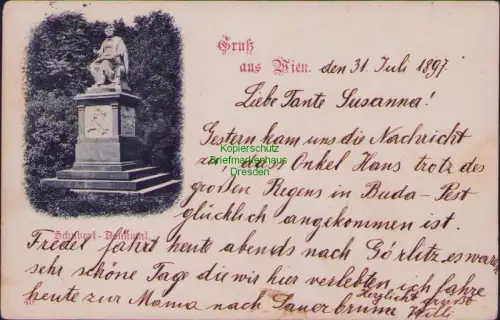 Gruß
aus Wien. den 31. Juli 1897
Liebe Tante Susanna!
Gestern kam uns die Nachricht
zu, dass Onkel Hans trotz des
großen Regens in Buda-Pest
glücklich angekommen ist.
Schubert-Denkmal.
Fredel fährt heute abends nach Görlitz, es waren
sehr schöne Tage die wir hier verlebten ich fahre
heute zur Mama nach Sauerbrunn Herzlichst grüßt
Willi
Kopierschutz
Briefmarkenhaus
Dresden